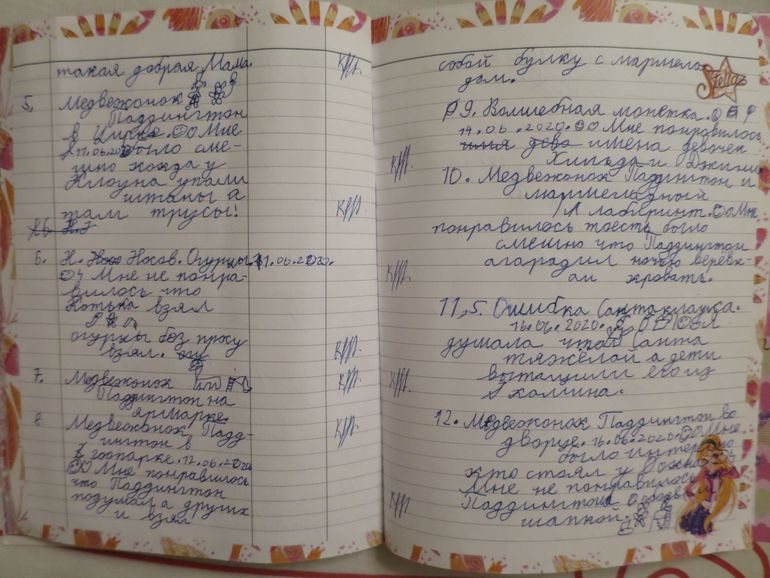 такая добрая Мама. КРП.
5. Медвежонок
Паддингтон
в Цирке. Мне
11.06.2020 было сме-
шно когда у
Клоуна упали
штаны а
там трусы! КРП.
6. Н. Носов. Огурцы. 11.06.2020.
Мне не понра-
вилось что
Котька взял
огурцы без
взял. КРП.
7. Медвежонок КРП.
Паддингтон на
ярмарке.
8. Медвежонок Падд- КРП.
ингтон в
зоопарке. 12.06.2020
Мне понравилось
что Паддингтон
подумал а других
и взял
собой булку с мармела
дом.
Stellaz
9. Волшебная монетка.
14.06.2020. Мне понравилось
имя дево имена девочек
КРП. Хильда и
10. Медвежонок Паддингтон и
мармеладный
лабиринт. Мне
понравилось тоесть было
смешно что Паддингтон
агарадил ночью верёвк-
КРП. ам кровать.
11,5. Ошибка Сантаклауса.
16.06.2020. Я
думала что Санта
тяжёлой а дети
КРП. вытащили его из
камина.
12. Медвежонок Паддингтон во
дворце. 16.06.2020 Мне
было интересно
кто стоял у окна
Мне не понравилось
КРП. Паддингтон с
шапкой.